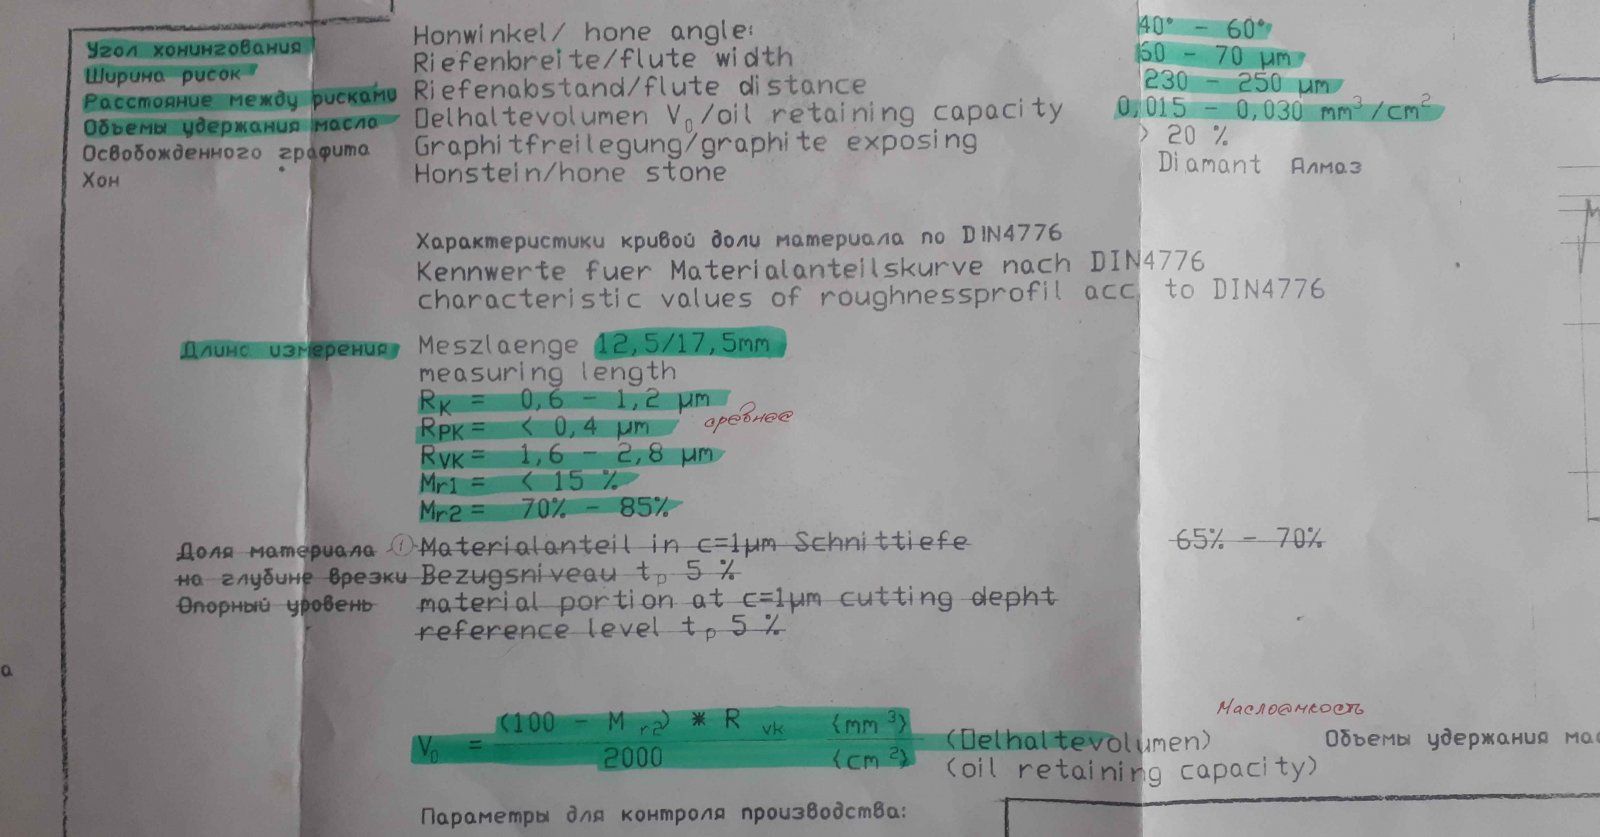 Угол хонингования Honwinkel/ hone angle: 40° - 60°
Ширина рисок Riefenbreite/flute width 60 - 70 µm
Расстояние между рисками Riefenabstand/flute distance 230 - 250 µm
Объемы удержания масла Oelhaltevolumen V₀/oil retaining capacity 0,015 - 0,030 mm³/cm²
Освобожденного графита Graphitfreilegung/graphite exposing > 20 %
Хон Honstein/hone stone Diamant Алмаз
Характеристики кривой доли материала по DIN4776
Kennwerte fuer Materialanteilskurve nach DIN4776
characteristic values of roughnessprofil acc. to DIN4776
Длинс измерения Meszlaenge 12,5/17,5mm
measuring length
RK = 0,6 - 1,2 µm
RPK = < 0,4 µm среднее
RVK = 1,6 - 2,8 µm
Mr1 = < 15 %
Mr2 = 70% - 85%
Доля материала ① Materialanteil in c=1µm Schnittiefe 65% - 70%
на глубине врезки Bezugsniveau tp 5 %
Опорный уровень material portion at c=1µm cutting depht
reference level tp 5 %
а
Маслоёмкость
V₀ = (100 - M r2) * R vk {mm ³} / 2000 {cm ²} (Oelhaltevolumen) Объемы удержания мас
(oil retaining capacity)
Параметры для контроля производства: